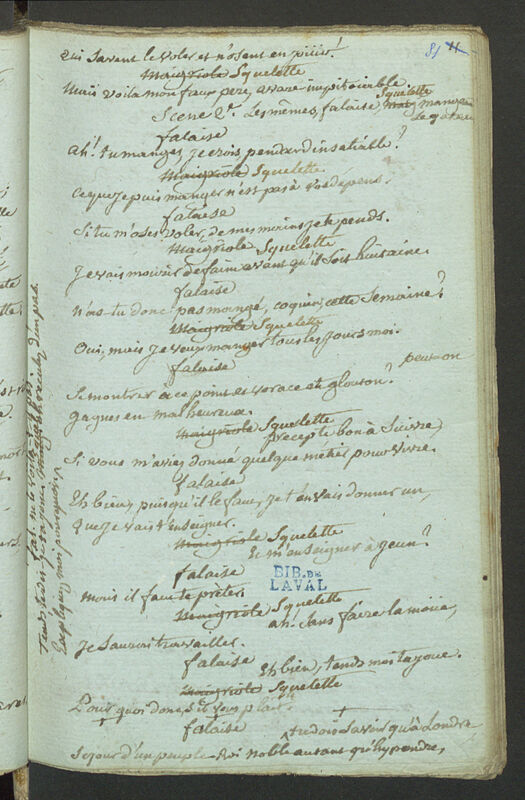 81 11
qui savent le voler et n'osent en
Maigriole Squelette
Mais voila mon faux pere, avare impitoiable.
Scene 2e. Les mêmes, falaise, Squelette
falaise
ah! tu manges, je crois, pendard insatiable?
Maigriole Squelette
ce que je puis manger n'est pas à vos depens.
falaise
Si tu m'oses voler, de mes mains je te pends.
Maigriole Squelette
Je vais mourir de faim avant qu'il soit huitaine.
falaise
N'as-tu donc pas mangé, coquin, cette Semaine?
Maigriole Squelette
Oui, mais je veux manger tous les jours moi.
falaise
peut-on
Se montrer à ce point et vorace et glouton?
Gagnes en malheureux.
Maigriole Squelette
precepte bon à Suivre,
Si vous m'aviez donné quelque métier pour vivre.
falaise
Eh bien, puisqu'il le faut, je t'en vais donner un,
Que je vais t'enseigner.
Maigriole Squelette
Et m'enseigner à jeun?
falaise
Mais il faut te prêter.
BIB. DE
LAVAL
Maigriole Squelette
ah! Sans faire la moüe,
Je Saurai travailler.
falaise
Eh bien, tends moi ta joue.
Maigriole Squelette
Pourquoi donc, s'il vous plait.
falaise
tu dois Savoir qu'à Londre
Sejour d'un peuple Roi noble autant qu'hypondre,